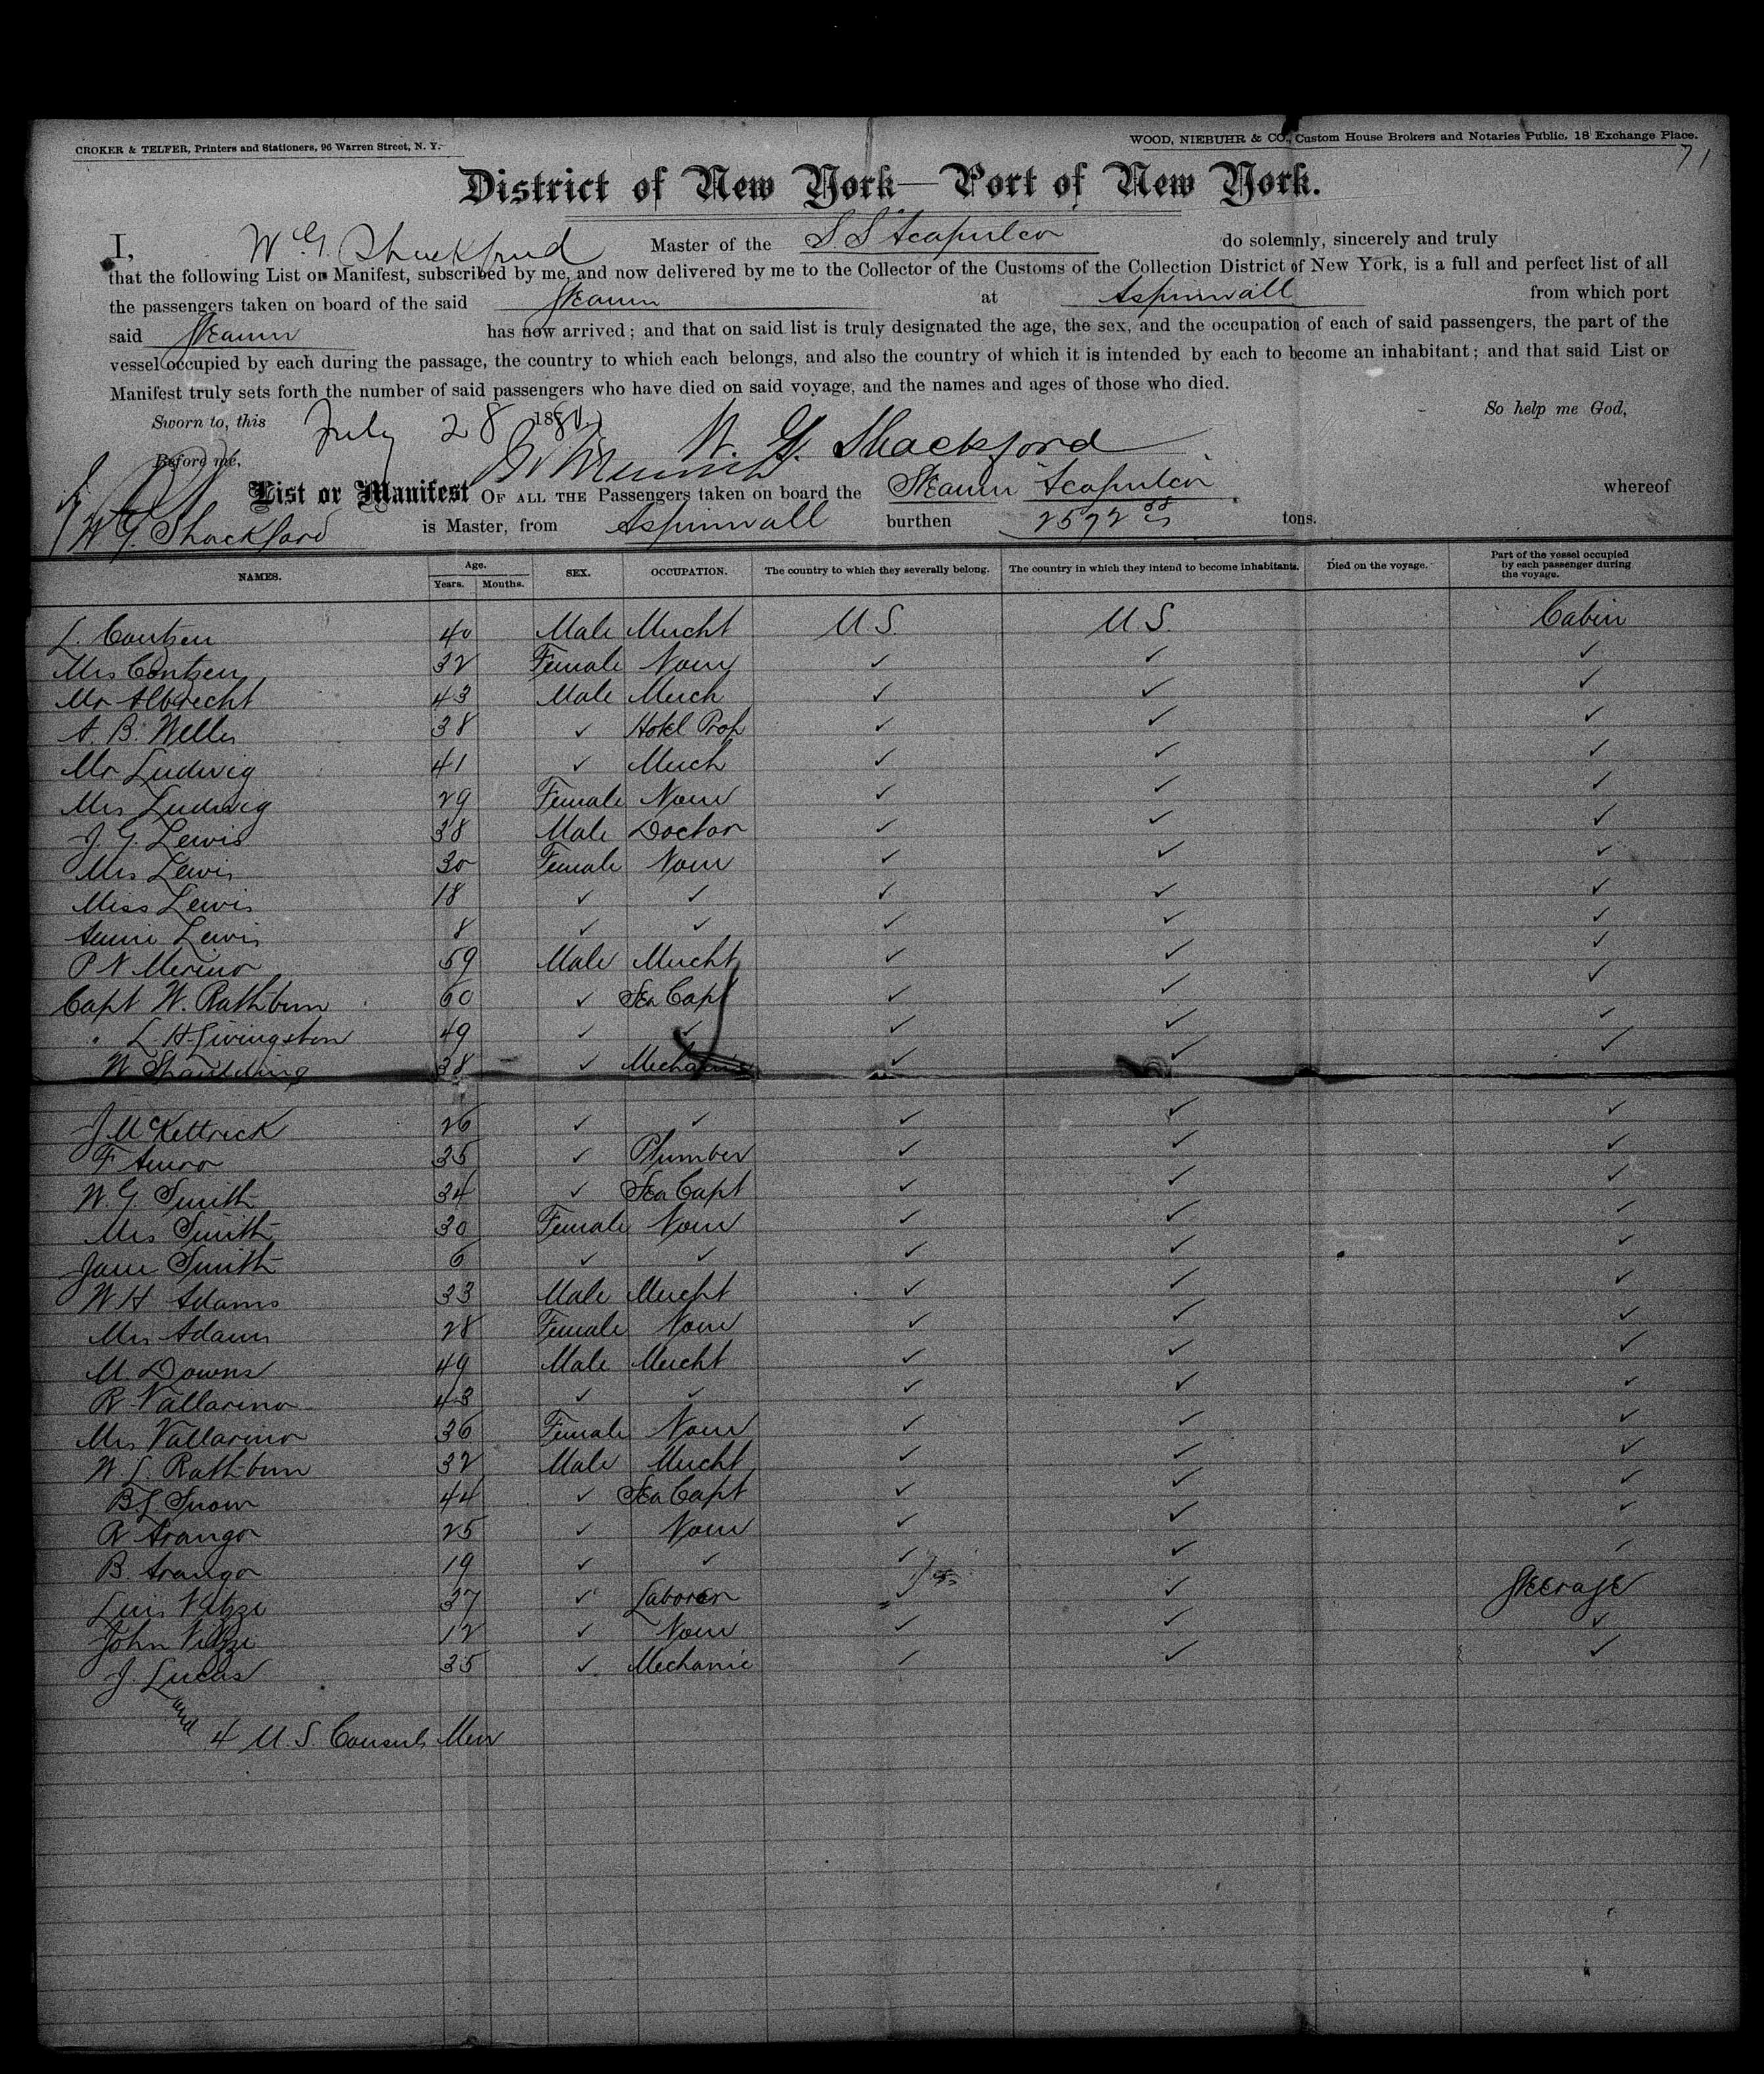 CROKER & TELFER, Printers and Stationers, 96 Warren Street, N. Y.
WOOD, NIEBUHR & CO., Custom House Brokers and Notaries Public, 18 Exchange Place.
71
District of New York—Port of New York.
I, W. G. Shackford Master of the S S Acapulco do solemnly, sincerely and truly
that the following List or Manifest, subscribed by me, and now delivered by me to the Collector of the Customs of the Collection District of New York, is a full and perfect list of all
the passengers taken on board of the said Steamer at Aspinwall from which port
said Steamer has now arrived; and that on said list is truly designated the age, the sex, and the occupation of each of said passengers, the part of the
vessel occupied by each during the passage, the country to which each belongs, and also the country of which it is intended by each to become an inhabitant; and that said List or
Manifest truly sets forth the number of said passengers who have died on said voyage, and the names and ages of those who died.
Sworn to, this July 28 188 So help me God,
Before me, W. G. Shackford
List or Manifest OF ALL THE Passengers taken on board the Steamer Acapulco whereof
W G. Shackford is Master, from Aspinwall burthen 2572 tons.
NAMES. Age. Years. Months. SEX. OCCUPATION. The country to which they severally belong. The country in which they intend to become inhabitants. Died on the voyage. Part of the vessel occupied by each passenger during the voyage.
L. Contzen 40 Male Mercht U S. U S. Cabin
Mrs Contzen 32 Female None ✓ ✓ ✓
Mr Albrecht 43 Male Merch ✓ ✓ ✓
A. B. Weller 38 ✓ Hotel Prop ✓ ✓ ✓
Mr Ludwig 41 ✓ Merch ✓ ✓ ✓
Mrs Ludwig 29 Female None ✓ ✓ ✓
J. G. Lewis 38 Male Doctor ✓ ✓ ✓
Mrs Lewis 30 Female None ✓ ✓ ✓
Miss Lewis 18 ✓ ✓ ✓ ✓ ✓
Annie Lewis 8 ✓ ✓ ✓ ✓ ✓
P N Merino 59 Male Mercht ✓ ✓ ✓
Capt W. Rathbun 60 ✓ Sea Capt ✓ ✓ ✓
" L. H. Livingston 49 ✓ ✓ ✓ ✓ ✓
W Spaulding 38 ✓ Mechanic ✓ ✓ ✓
J McKettrick 26 ✓ ✓ ✓ ✓ ✓
F 35 ✓ Plumber ✓ ✓ ✓
W. G. Smith 34 ✓ Sea Capt ✓ ✓ ✓
Mrs Smith 30 Female None ✓ ✓ ✓
Jane Smith 6 ✓ ✓ ✓ ✓ ✓
W H Adams 33 Male Mercht ✓ ✓ ✓
Mrs Adams 28 Female None ✓ ✓ ✓
M. Downs 49 Male Mercht ✓ ✓ ✓
R Vallarino 43 ✓ ✓ ✓ ✓ ✓
Mrs Vallarino 36 Female None ✓ ✓ ✓
W. L. Rathbun 32 Male Mercht ✓ ✓ ✓
B. L. Snow 44 ✓ Sea Capt ✓ ✓ ✓
R Arango 25 ✓ None ✓ ✓ ✓
B. Arango 19 ✓ ✓ ✓ ✓ ✓
Luis 37 ✓ Laborer ✓ ✓ Steerage
John 12 ✓ None ✓ ✓ ✓
J. Lucas 35 ✓ Mechanic ✓ ✓ ✓
and 4 U. S. Consuls Men